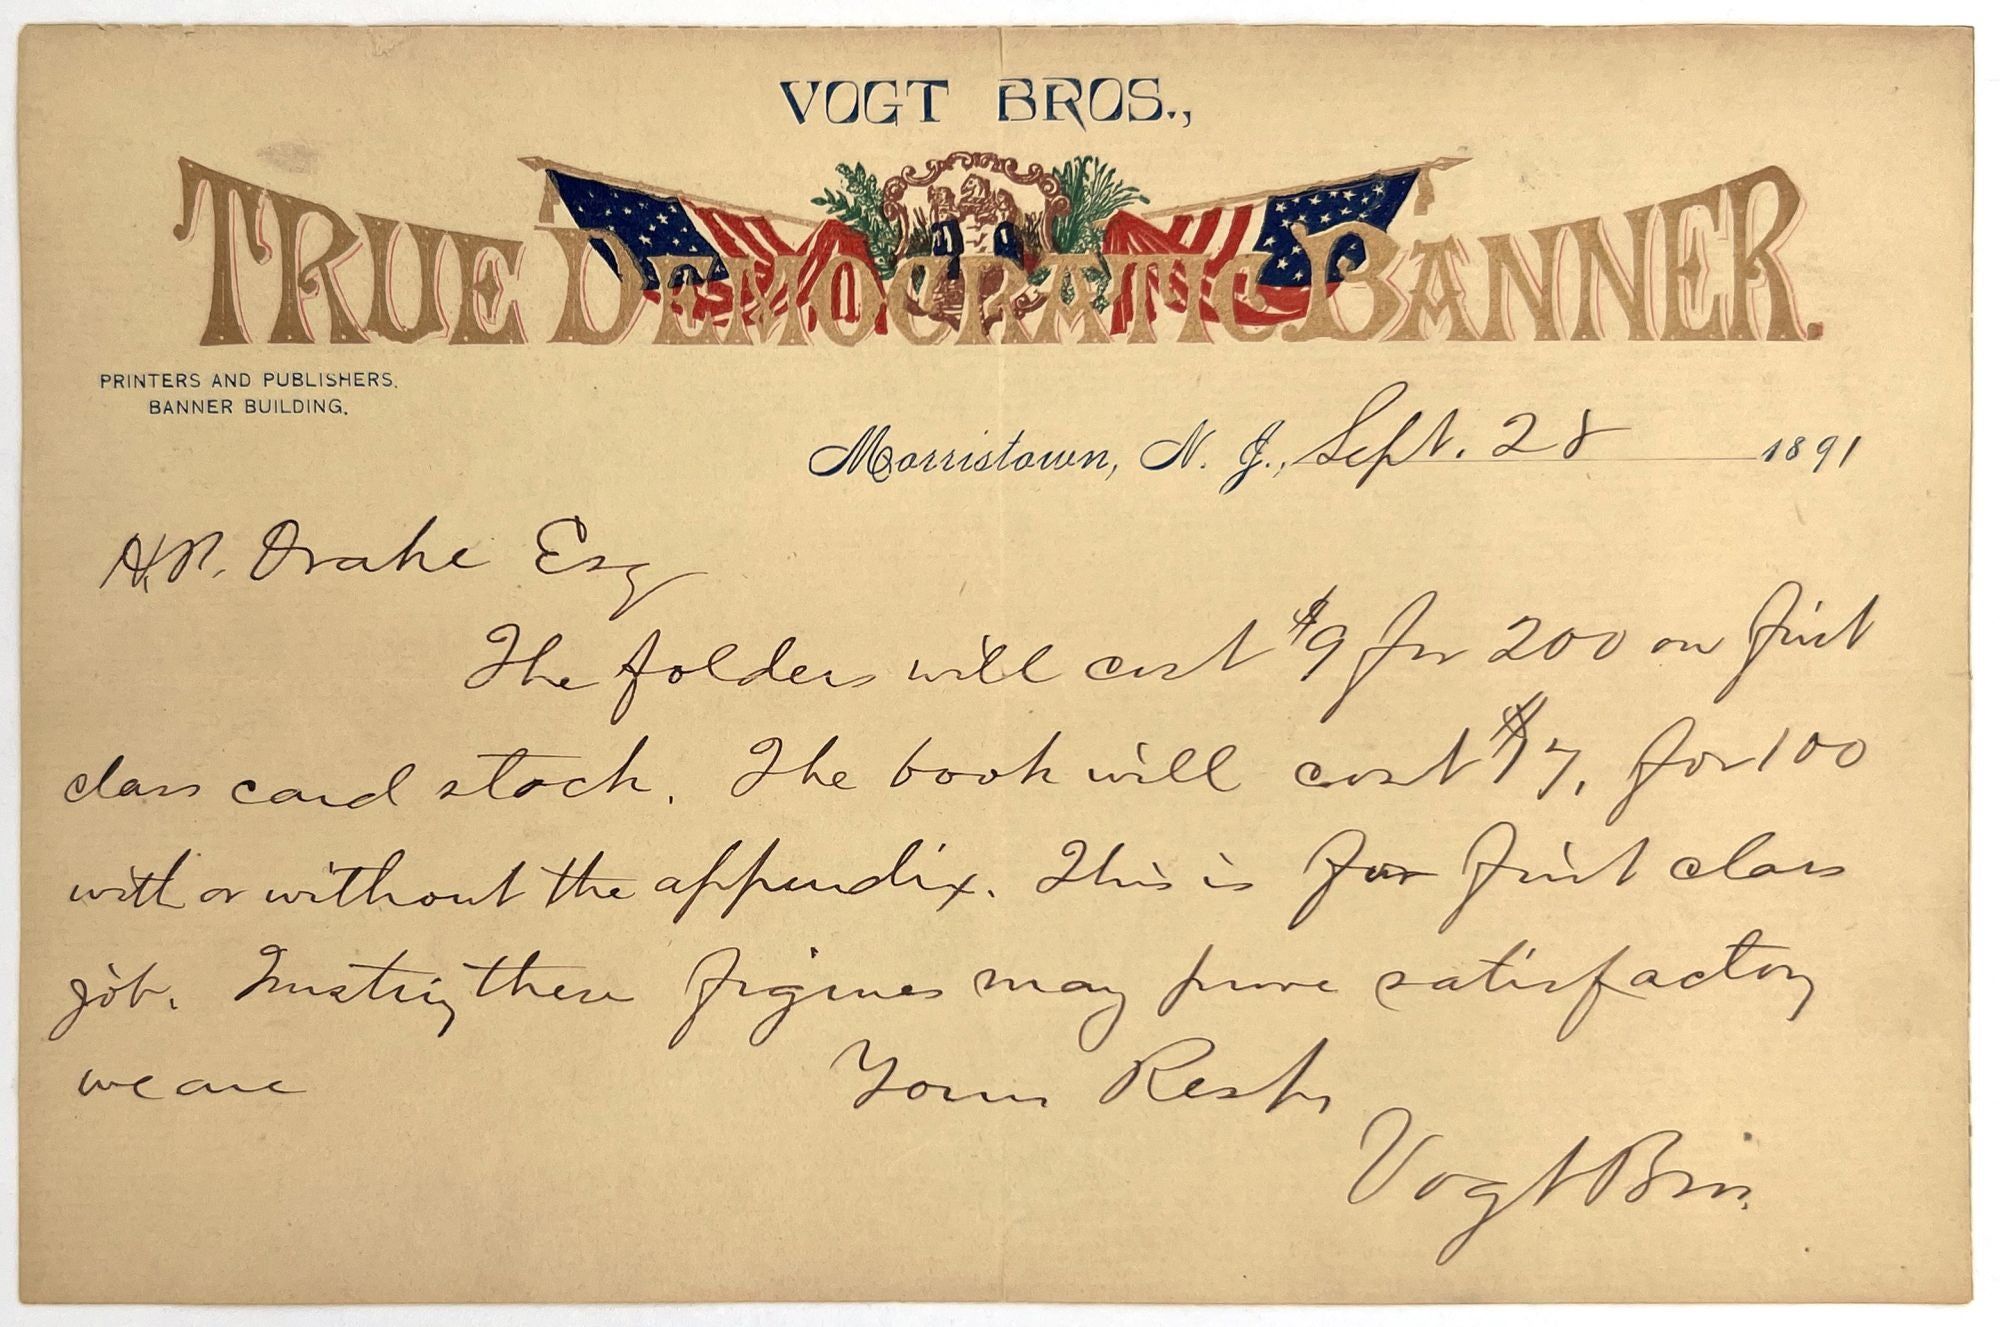 VOGT BROS.,
TRUE DEMOCRATIC BANNER.
PRINTERS AND PUBLISHERS.
BANNER BUILDING.
Morristown, N. J., Sept. 28 1891
H. N. Drake Esq
The folders will cost $9 for 200 on first
class card stock. The book will cost $17, for 100
with or without the appendix. This is for first class
job. Trusting these figures may prove satisfactory
we are Yours Resp,
Vogt Bros.